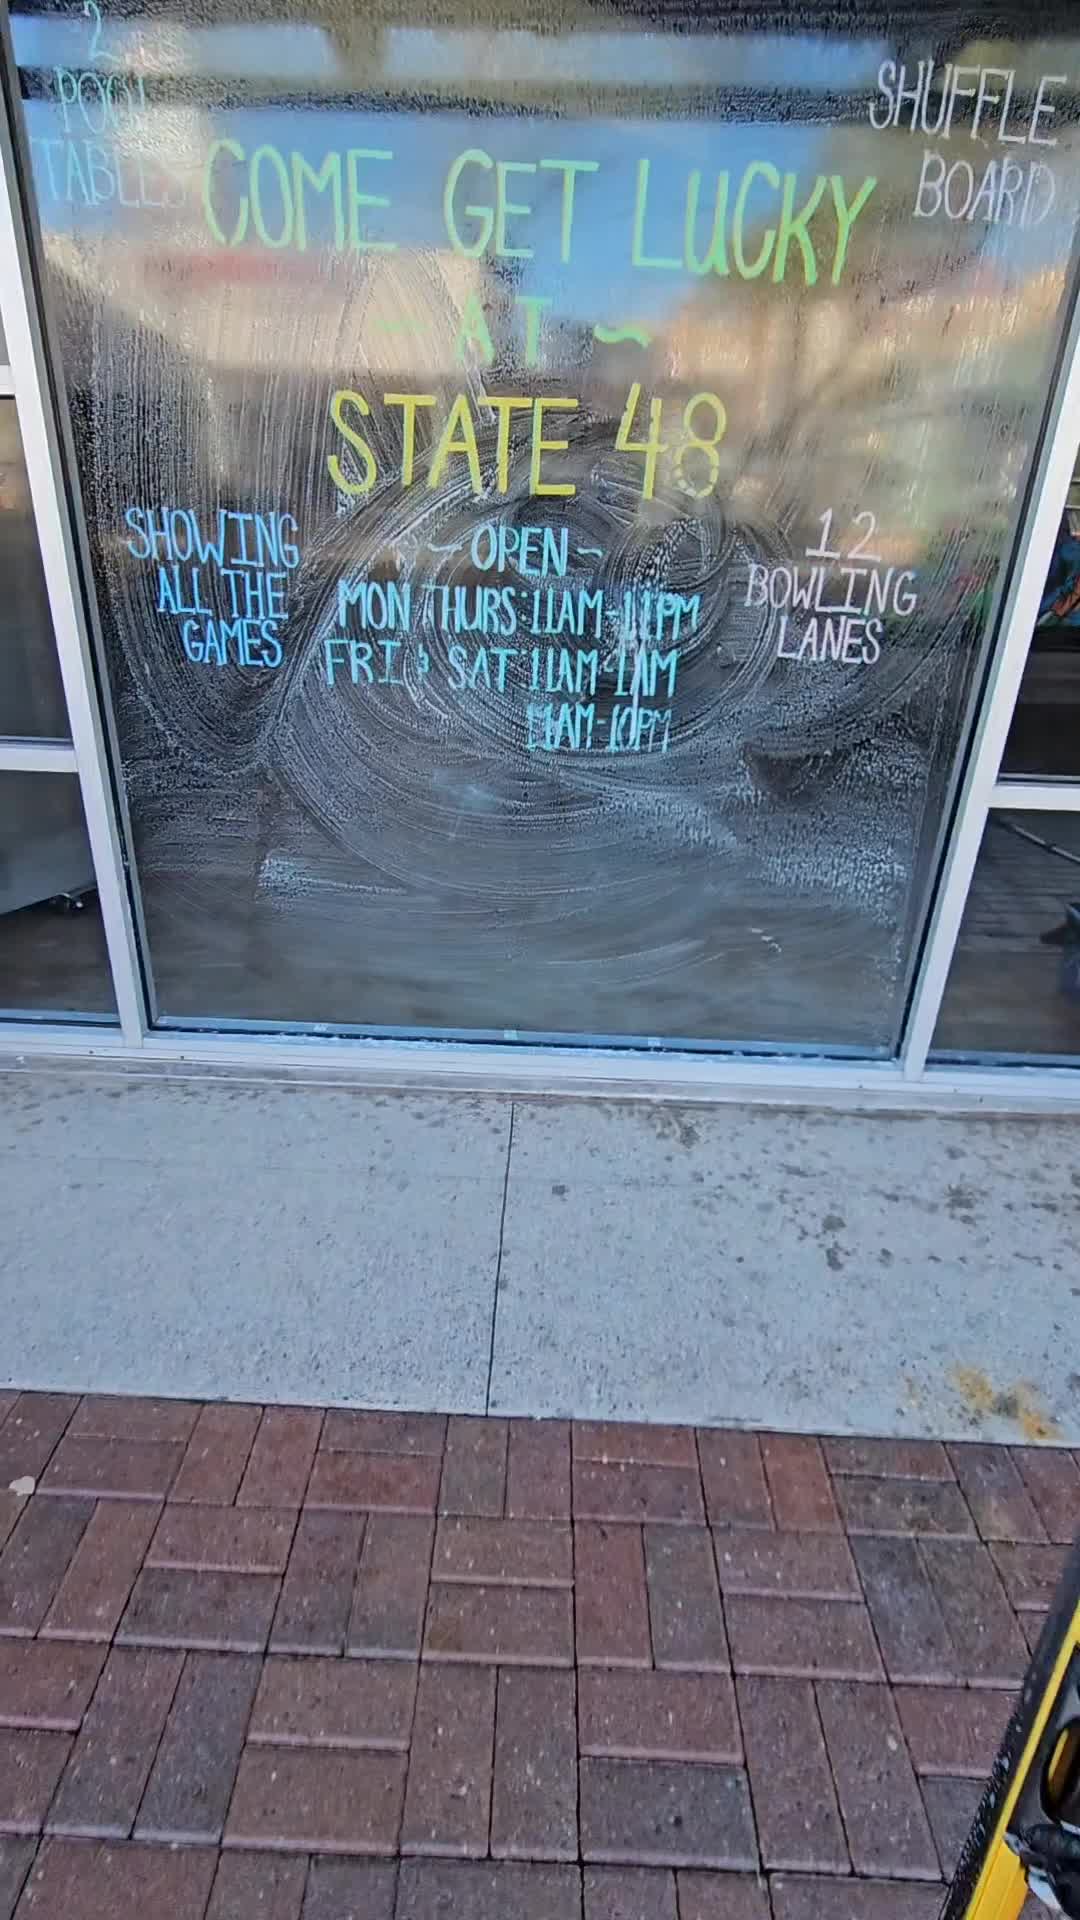 2
POOL
TABLES
SHUFFLE
BOARD
COME GET LUCKY
~ AT ~
STATE 48
SHOWING
ALL THE
GAMES
~ OPEN ~
MON THURS: 11AM-11PM
FRI & SAT: 11AM-1AM
11AM-10PM
12
BOWLING
LANES